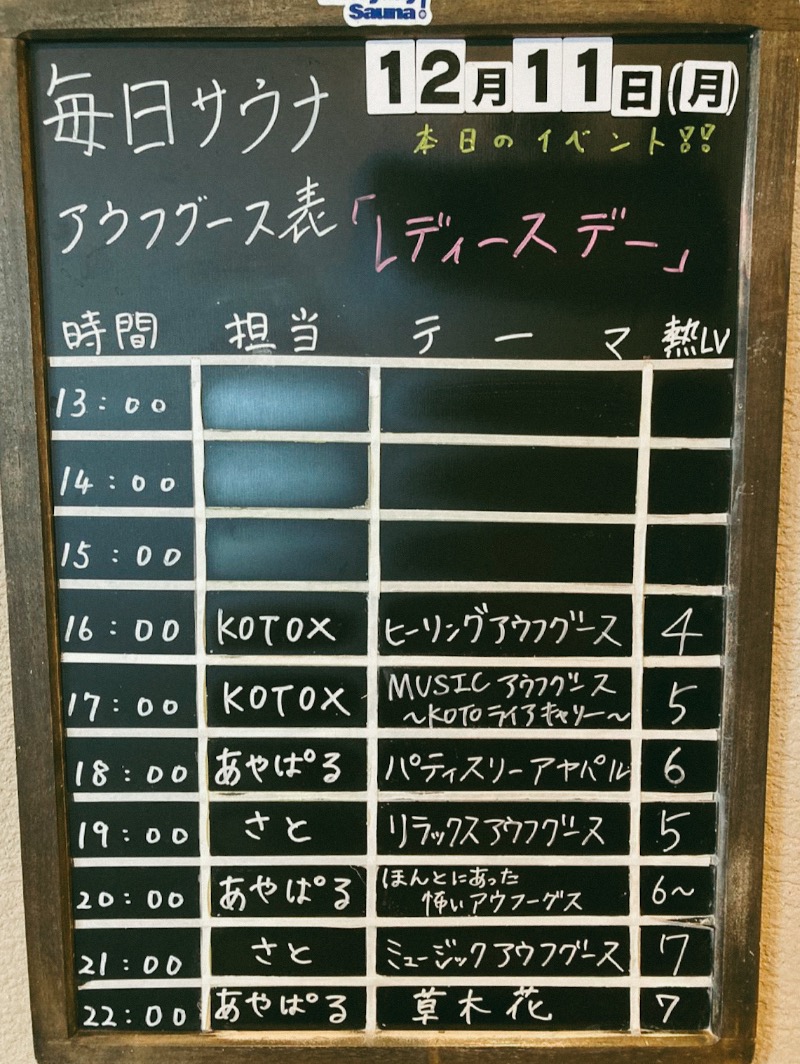 Sauna!
12月11日(月)
毎日サウナ
本日のイベント
アウフグース表
「レディースデー」
時間 担当 テーマ 熱LV
13:00
14:00
15:00
16:00 KOTOX ヒーリングアウフグース 4
17:00 KOTOX MUSIC アウフグース
〜KOTOライアキャリー〜 5
18:00 あやぱる パティスリーアヤパル 6
19:00 さと リラックスアウフグース 5
20:00 あやぱる ほんとにあった
怖いアウフーグス 6〜
21:00 さと ミュージックアウフグース 7
22:00 あやぱる 草木花 7